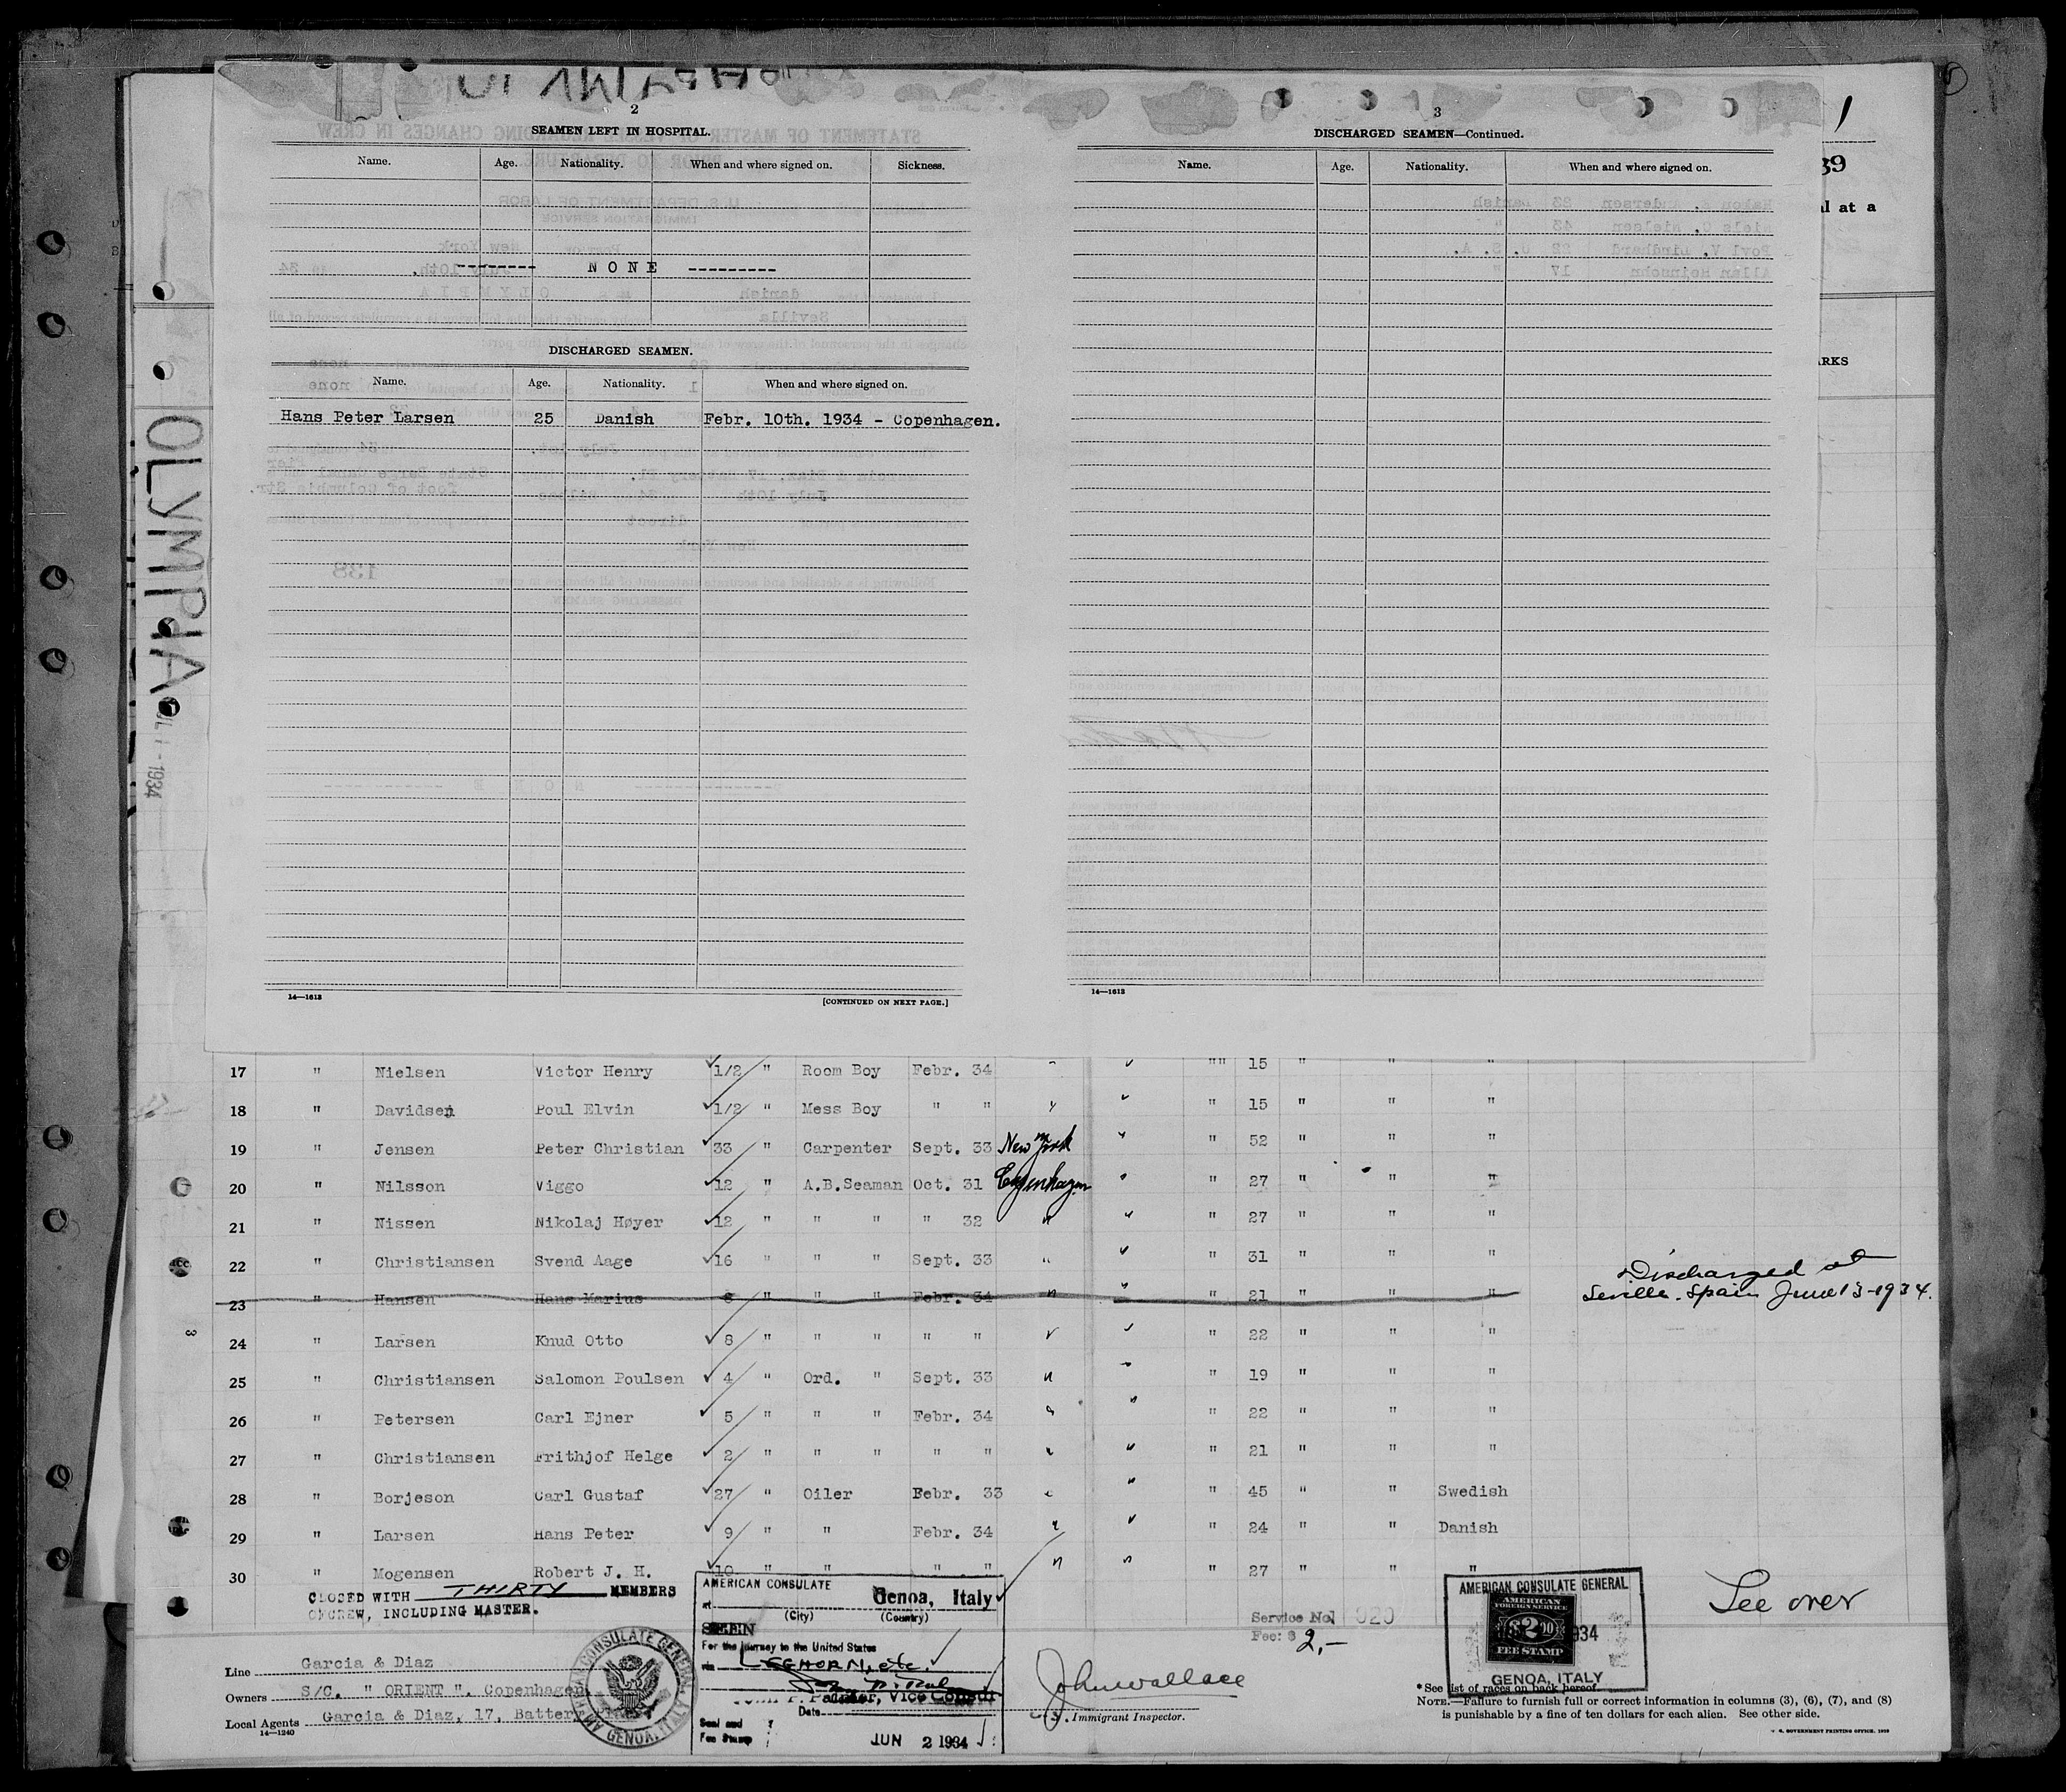 2
SEAMEN LEFT IN HOSPITAL.
Name. Age. Nationality. When and where signed on. Sickness.
--------- N O N E ---------
DISCHARGED SEAMEN.
Name. Age. Nationality. When and where signed on.
Hans Peter Larsen 25 Danish Febr. 10th. 1934 - Copenhagen.
14—1613
[CONTINUED ON NEXT PAGE.]
3
DISCHARGED SEAMEN—Continued.
Name. Age. Nationality. When and where signed on.
14—1613
1
39
al at a
ARKS
OLYMPIA
JUL 1 - 1934
17 " Nielsen Victor Henry 1/2 " Room Boy Febr. 34 " " "" 15 " " "
18 " Davidsen Poul Elvin 1/2 " Mess Boy " " " " " 15 " " "
19 " Jensen Peter Christian 33 " Carpenter Sept. 33 New York " " 52 " " "
20 " Nilsson Viggo 12 " A.B.Seaman Oct. 31 Copenhagen " " 27 " " "
21 " Nissen Nikolaj Høyer 12 " " " " 32 " " " 27 " " "
22 " Christiansen Svend Aage 16 " " " Sept. 33 " " " 31 " " "
23 " Hansen Hans Marius 6 " " " Febr. 34 " " " 21 " " " Discharged at
Seville. Spain June 13-1934.
24 " Larsen Knud Otto 8 " " " " " " " " 22 " " "
25 " Christiansen Salomon Poulsen 4 " Ord. " Sept. 33 " " " 19 " " "
26 " Petersen Carl Ejner 5 " " " Febr. 34 " " " 22 " " "
27 " Christiansen Frithjof Helge 2 " " " " " " " " 21 " " "
28 " Borjeson Carl Gustaf 27 " Oiler Febr. 33 " " " 45 " " Swedish
29 " Larsen Hans Peter 9 " " Febr. 34 " " " 24 " " Danish
30 " Mogensen Robert J. H. 10 " " " " " " " 27 " " "
CLOSED WITH THIRTY MEMBERS
OF CREW, INCLUDING MASTER.
AMERICAN CONSULATE
at Genoa, Italy
(City) (Country)
SEEN
For the journey to the United States
via LEGHORN, etc.
John P. Palmer, Vice Consul
Date
Seal and
Fee Stamp
JUN 2 1934
AMERICAN CONSULATE GENERAL
GENOA, ITALY
Service No. 920
Fee: $ 2,—
AMERICAN CONSULATE GENERAL
AMERICAN
FOREIGN SERVICE
$2.00
FEE STAMP
1934
GENOA, ITALY
See over
Line Garcia & Diaz
Owners S/C. " ORIENT ". Copenhagen
Local Agents Garcia & Diaz, 17, Battery
14—1240
John Wallace
U. S. Immigrant Inspector.
* See list of races on back hereof.
NOTE.—Failure to furnish full or correct information in columns (3), (6), (7), and (8)
is punishable by a fine of ten dollars for each alien. See other side.
U. S. GOVERNMENT PRINTING OFFICE